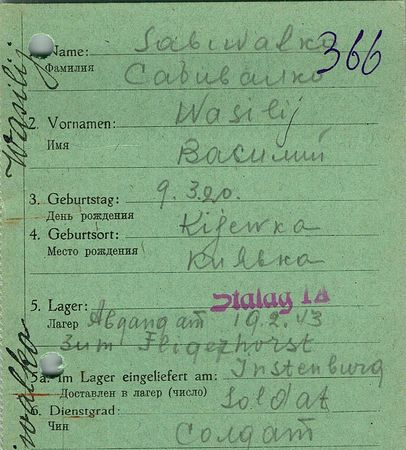 366
1. Name: Sabiwalko
Фамилия Сабивалко
2. Vornamen: Wasilij
Имя Василий
3. Geburtstag: 9.3.20.
День рождения
4. Geburtsort: Kijewka
Место рождения Киявка
5. Lager: Stalag IA
Лагерь Abgang am 19.2.43
zum Fliegerhorst
5a. Im Lager eingeliefert am: Instenburg
Доставлен в лагер (число)
6. Dienstgrad: Soldat
Чин Солдат
Wasilij
walko